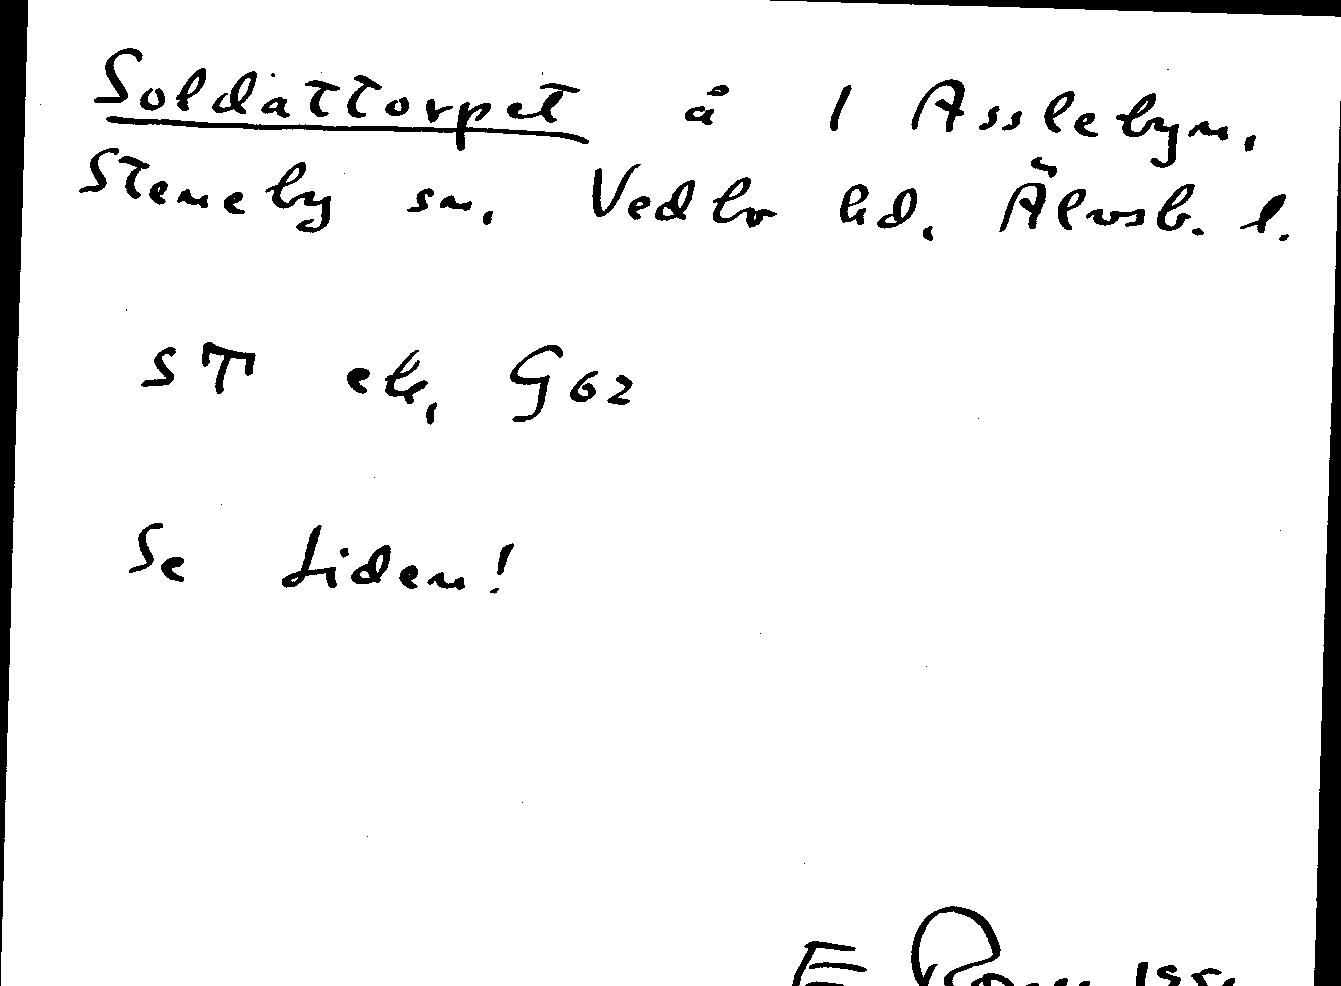 Soldattorpet å 1 Asslebyn,
Steneby sn, Vedbo hd, Älvsb. l.
ST ek, G62
Se Liden!
E